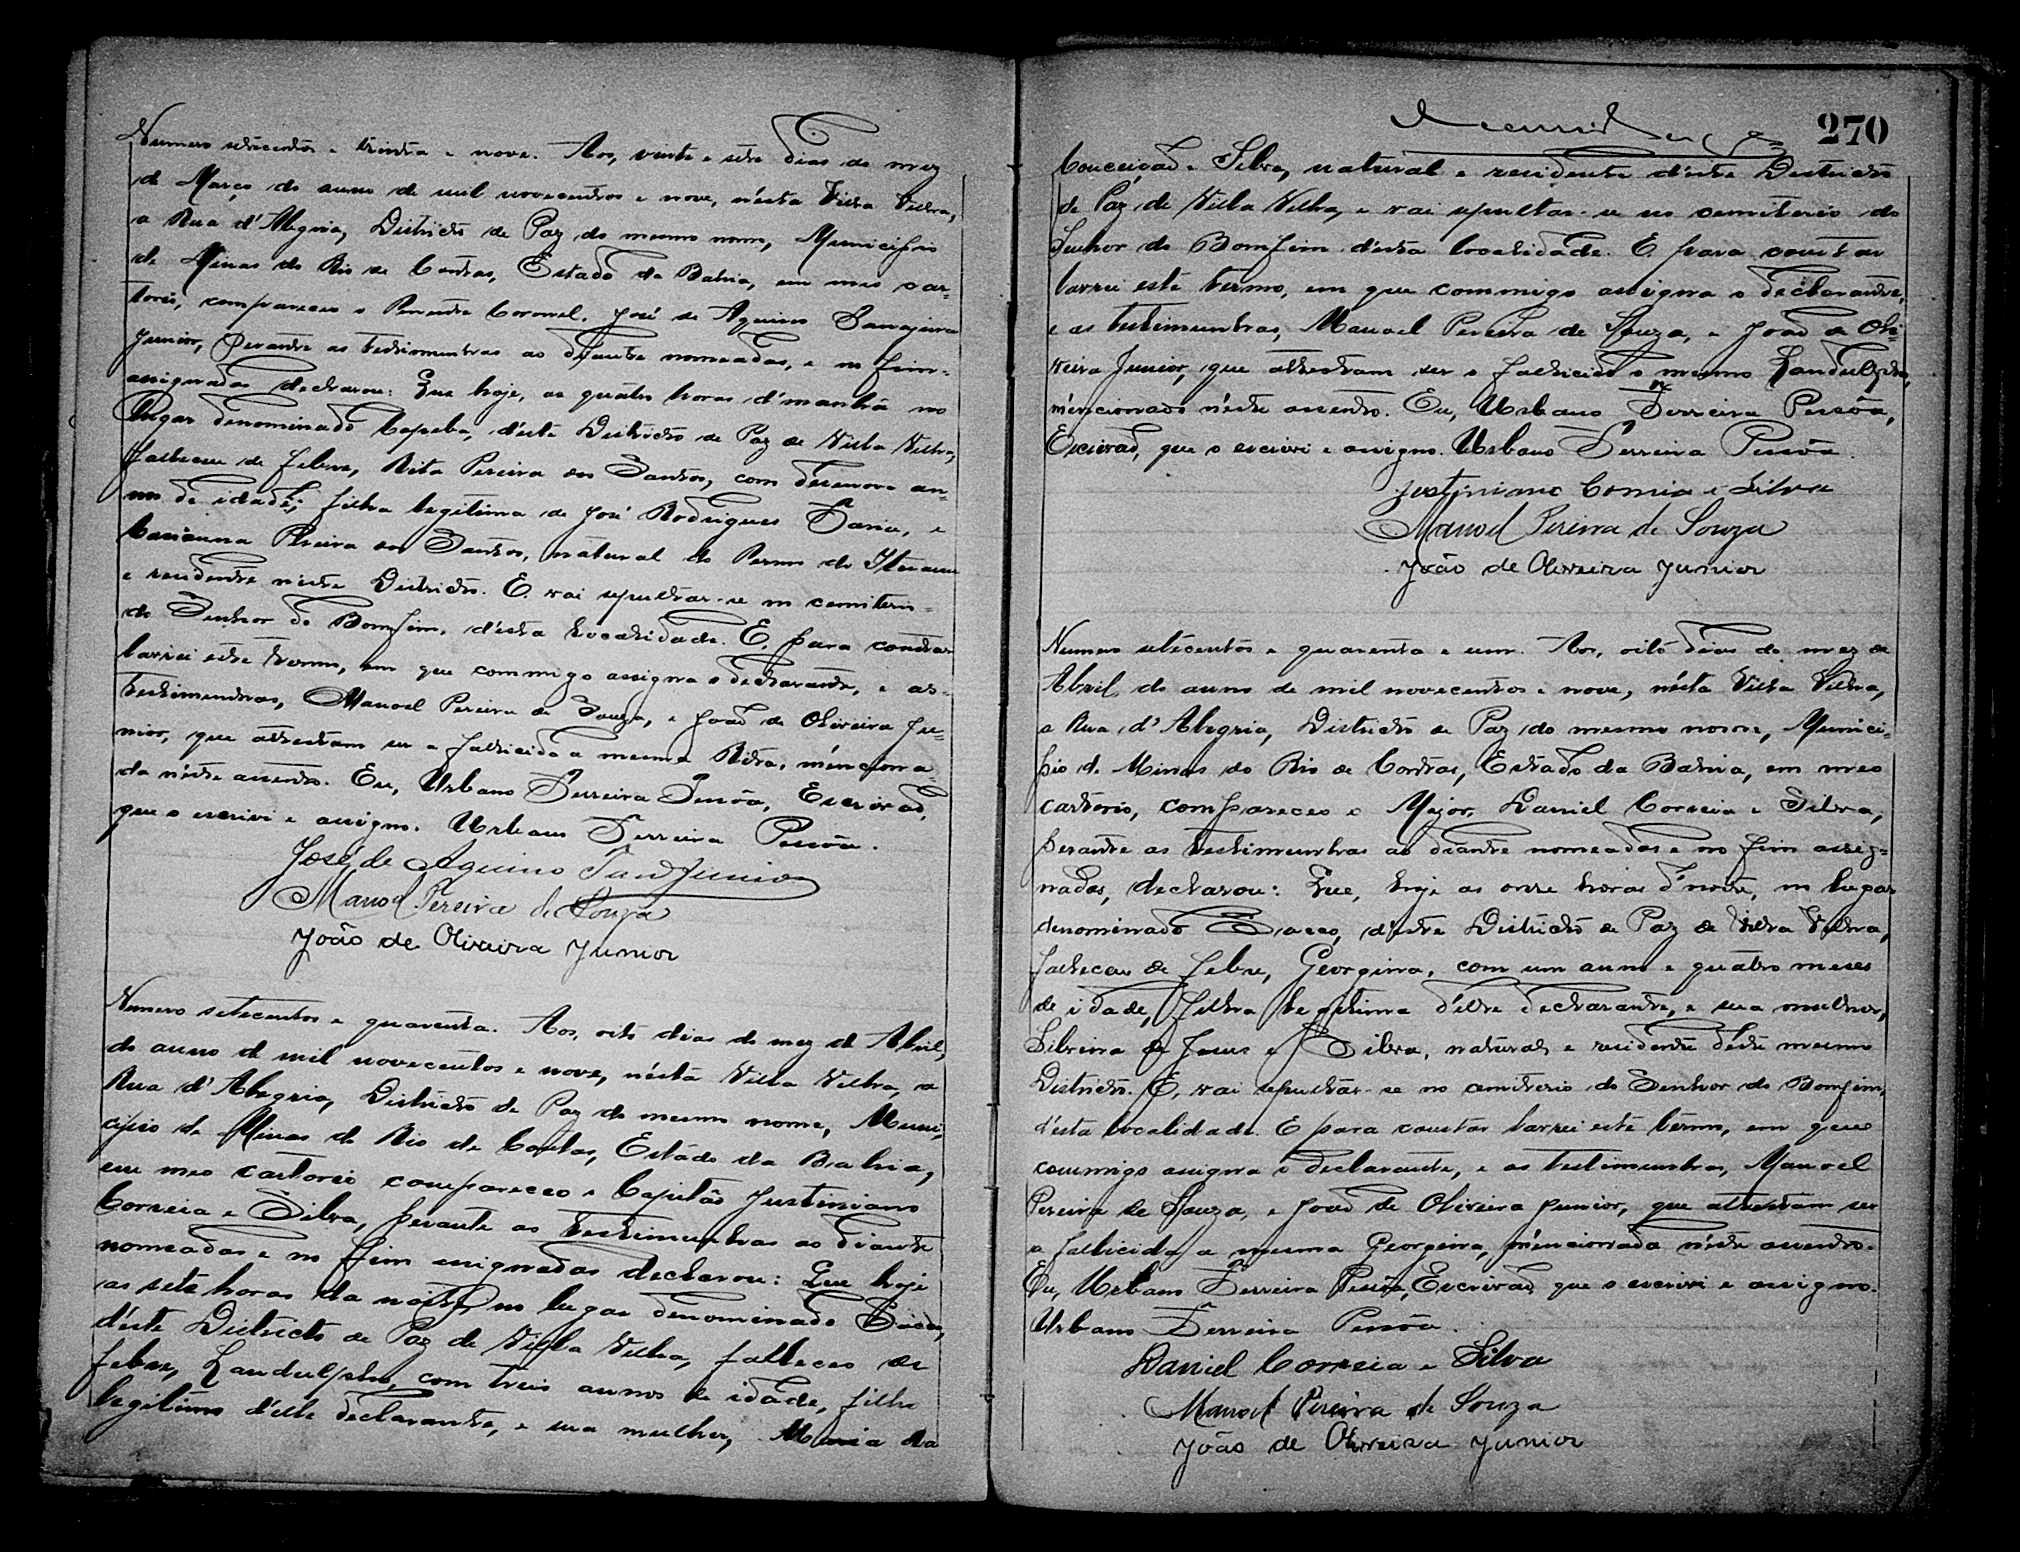 Numero setecentos e trinta e nove. Aos, vinte e sete dias do mez
de Março do anno de mil novecentos e nove, n'ésta Villa Velha,
a Rua d'Alegria, Districto de Paz do mesmo nome, Municipio
de Minas do Rio de Contas, Estado da Bahia, em meo car-
torio, compareceo o Tenente Coronel. José de Aquino Tanajura
Junior, perante as testimunhas ao diante nomeadas, e no fim
assignadas declarou: Que hoje, as quatro horas d'manhã no
lugar denominado Capeba, d'éste Districto de Paz de Villa Velha,
falleceu de febre, Rita Pereira dos Santos, com desenove an-
nos de idade, filha legitima de José Rodrigues Faria, e
Marianna Pereira dos Santos, natural do Termo do
e residente n'éste Districto. E. vai sepultar-se no cemiterio
do Senhor do Bomfim, d'ésta localidade. E, para constar
lavrei este termo, em que commigo assigna o declarante, e as
testimunhas, Manoel Pereira de Souza, e João de Oliveira Ju-
nior, que attestam ser a fallicida a mesma Rita, menciona-
da n'éste assento. Eu, Urbano Ferreira Pessôa, Escrivaõ,
que o escrivi e assigno. Urbano Ferreira Pessôa.
José de Aquino Tanajª Junior
Manoel Pereira de Souza
João de Oliveira Junior
Numero setecentos e quarenta. Aos, oito dias do mez de Abril,
do anno de mil novecentos e nove, n'ésta Villa Velha, a
Rua d'Alegria, Districto de Paz do mesmo nome, Muni-
cipio de Minas do Rio de Contas, Estado da Bahia,
em meo cartorio compareceo o Capitão Justiniano
Correia e Silva, perante as testimunhas ao diante
nomeadas e no fim assignadas declarou: Que hoje
as sete horas da noite, no lugar denominado
d'éste Districto de Paz de Villa Velha, falleceo de
febre, Landulpho, com treis annos de idade, filho
legitimo d'elle declarante, e sua mulher, Maria da
270
Conceição e Silva, natural e residente d'éste Districto
de Paz de Villa Velha, e vai sepultar-se no cemiterio do
Senhor do Bomfim d'ésta localidade. E para constar
lavrei este termo, em que commigo assigna o declarante,
e as testimunhas, Manoel Pereira de Souza, e João de Oli-
veira Junior, que attestam ser o fallicido o mesmo Landulpho,
mencionado n'éste assento. Eu, Urbano Ferreira Pessôa,
Escrivaõ, que o escrivi e assigno. Urbano Ferreira Pessôa.
Justiniano Correia e Silva
Manoel Pereira de Souza
João de Oliveira Junior
Numero setecentos e quarenta e um. Aos, oito dias do mez de
Abril, do anno de mil novecentos e nove, n'ésta Villa Velha,
a Rua d'Alegria, Districto de Paz do mesmo nome, Munici-
pio de Minas do Rio de Contas, Estado da Bahia, em meo
cartorio, compareceo o Major, Daniel Correia e Silva,
perante as testimunhas ao diante nomeadas e no fim assig-
nadas, declarou: Que, hoje as onze horas d'noite, no lugar
denominado d'éste Districto de Paz de Villa Velha,
falleceu de febre, Georgina, com um anno e quatro meses
de idade, filha legitima d'elle declarante, e sua mulher,
Silvina de Jesus e Silva, natural, e residente d'éste mesmo
Districto. E, vai sepultar-se no cemiterio do Senhor do Bomfim,
d'ésta localidade. E para constar lavrei este termo, em que
commigo assigna o declarante, e as testimunhas, Manoel
Pereira de Souza, e João de Oliveira Junior, que attestam ser
a fallicida, a mesma Georgina, mencionada n'éste assento.
Eu, Urbano Ferreira Pessôa, Escrivaõ, que o escrivi e assigno.
Urbano Ferreira Pessôa.
Daniel Correia e Silva
Manoel Pereira de Souza
João de Oliveira Junior